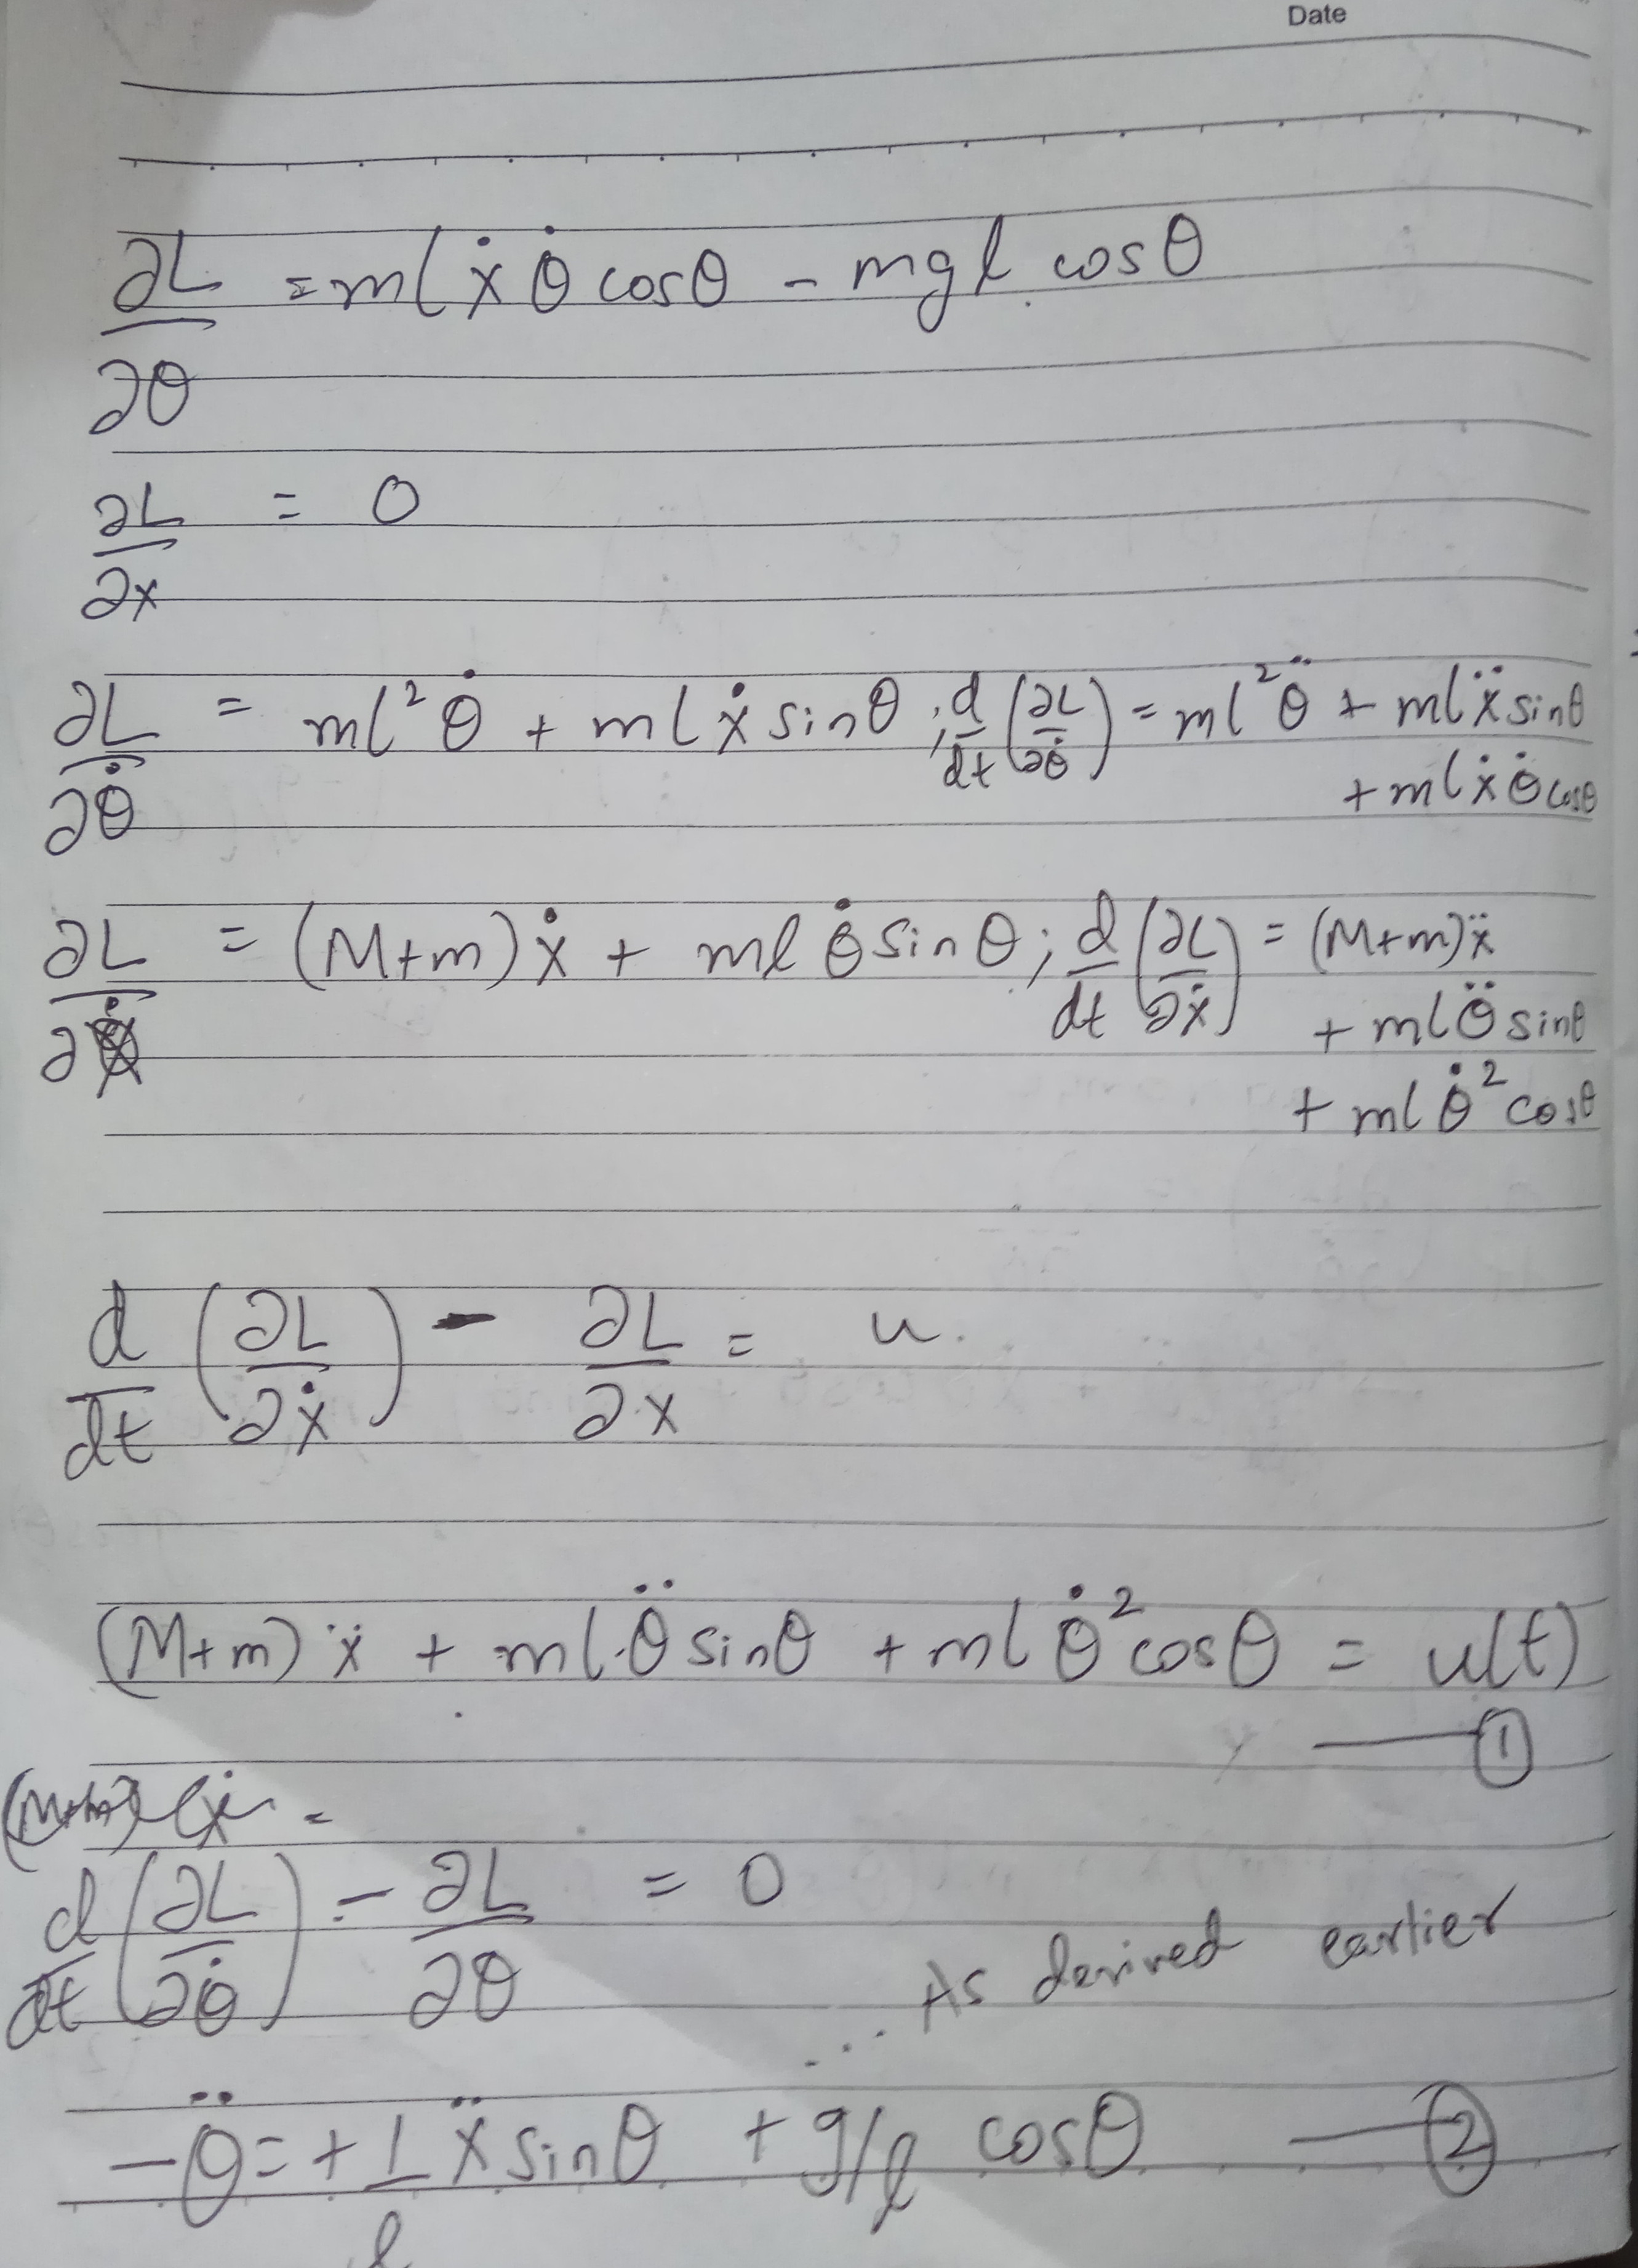 Date
∂L/∂θ = mlẋθ̇ cosθ - mgl cosθ
∂L/∂x = 0
∂L/∂θ̇ = ml²θ̇ + mlẋ sinθ ; d/dt (∂L/∂θ̇) = ml²θ̈ + mlẍ sinθ
+ mlẋθ̇ cosθ
∂L/∂ẋ = (M+m)ẋ + mlθ̇ sinθ ; d/dt (∂L/∂ẋ) = (M+m)ẍ
+ mlθ̈ sinθ
+ mlθ̇² cosθ
d/dt (∂L/∂ẋ) - ∂L/∂x = u.
(M+m)ẍ + ml.θ̈ sinθ + mlθ̇² cosθ = u(t)
①
d/dt (∂L/∂θ̇) - ∂L/∂θ = 0
... As derived earlier
-θ̈ = + 1/l ẍ sinθ + g/l cosθ — ②